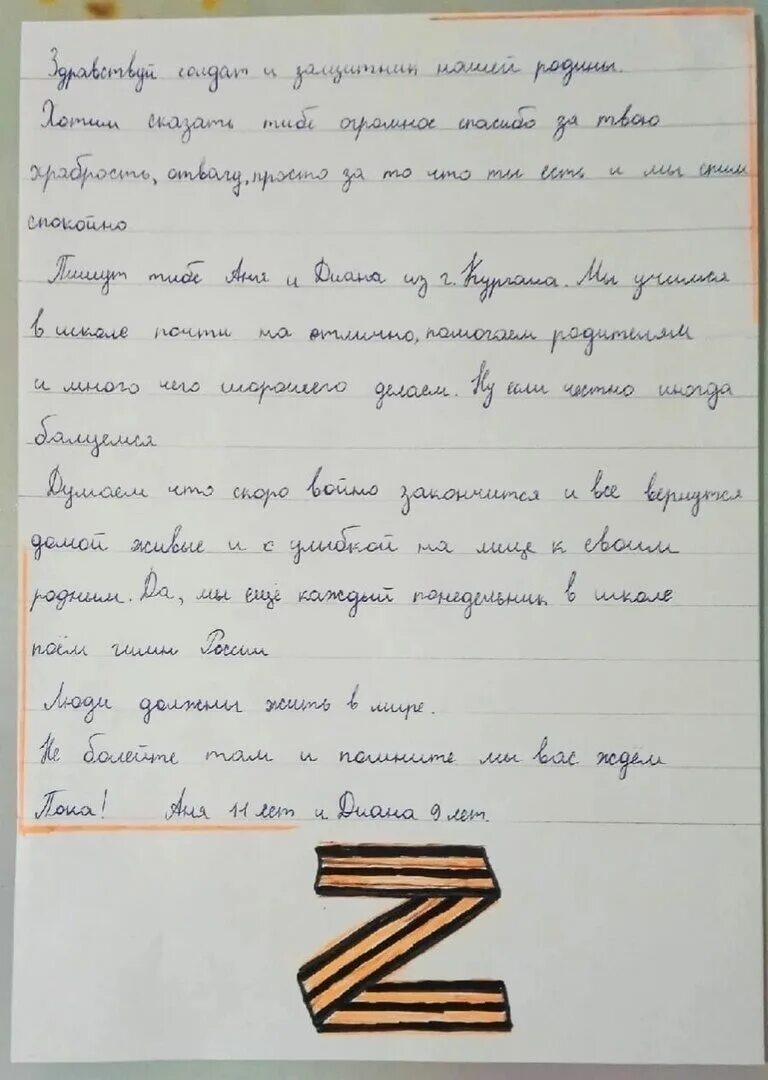 Здравствуй солдат и защитник нашей родины.
Хотим сказать тибе огромное спасибо за твою
храбрость, отвагу, просто за то что ты есть и мы спим
спокойно
Пишут тибе Аня и Диана из г. Кургана. Мы учимся
в школе почти на отлично, помогаем родителям
и много чего хорошего делаем. Ну если честно иногда
балуемся
Думаем что скоро война закончится и все вернутся
домой живые и с улыбкой на лице к своим
родным. Да, мы ещё каждый понедельник в школе
поём гимн России
Люди должны жить в мире.
Не болейте там и помните мы вас ждём
Пока! Аня 11 лет и Диана 9 лет.
Z